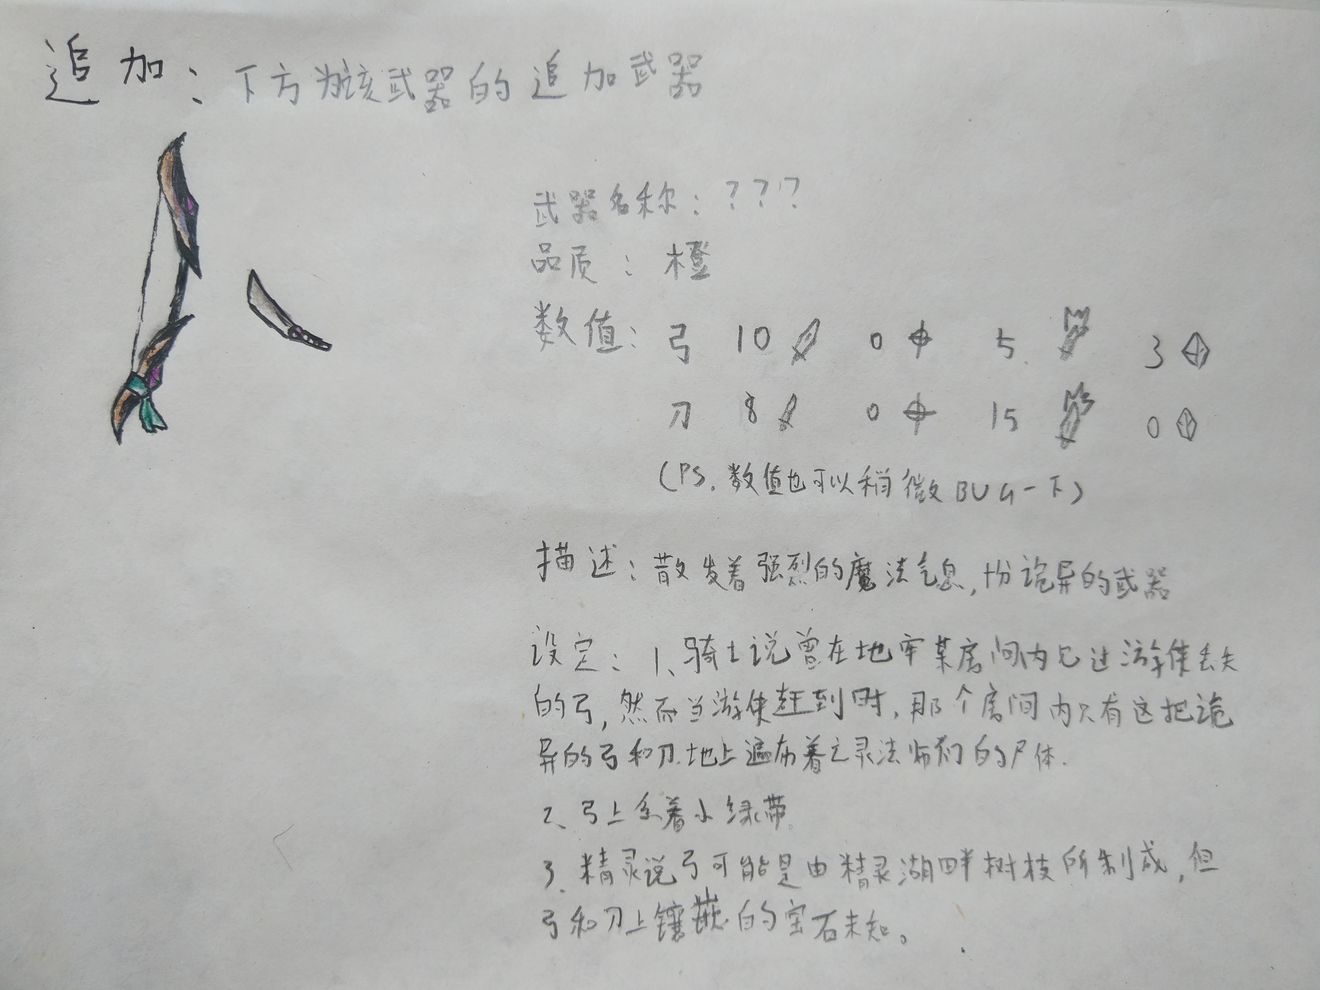 追加：下方为该武器的追加武器
武器名称：？？？
品质：橙
数值：弓 10 0 5 3
刀 8 0 15 0
（PS.数值也可以稍微BUG一下）
描述：散发着强烈的魔法气息，十分诡异的武器
设定：1、骑士说曾在地牢某房间内见过游侠丢失
的弓，然而当游侠赶到时，那个房间内只有这把诡
异的弓和刀.地上遍布着亡灵法师们的尸体.
2、弓上系着小绿带
3.精灵说弓可能是由精灵湖畔树枝所制成，但
弓和刀上镶嵌的宝石未知。